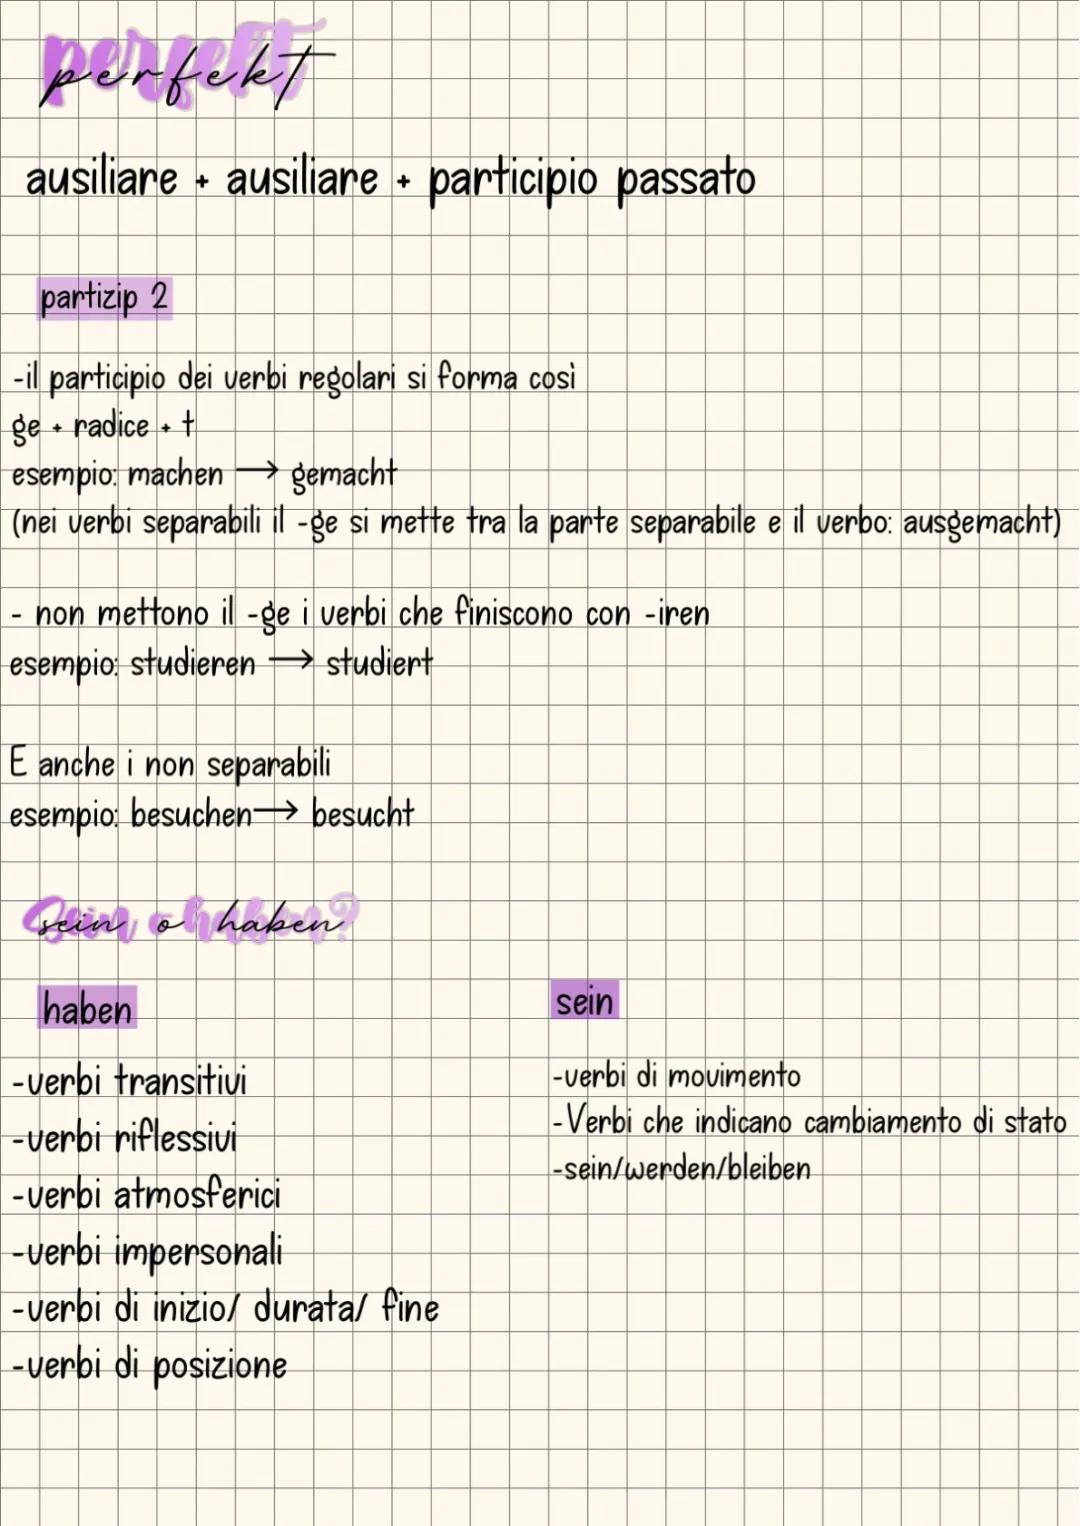 perfekt
ausiliare + ausiliare + participio passato
partizip 2
-il participio dei verbi regolari si forma così
ge + radice + t
esempio: machen → gemacht
(nei verbi separabili il -ge si mette tra la parte separabile e il verbo: ausgemacht)
- non mettono il -ge i verbi che finiscono con -iren
esempio: studieren → studiert
E anche i non separabili
esempio: besuchen → besucht
sein o haben?
haben
-verbi transitivi
-verbi riflessivi
-verbi atmosferici
-verbi impersonali
-verbi di inizio/ durata/ fine
-verbi di posizione
sein
-verbi di movimento
-Verbi che indicano cambiamento di stato
-sein/werden/bleiben